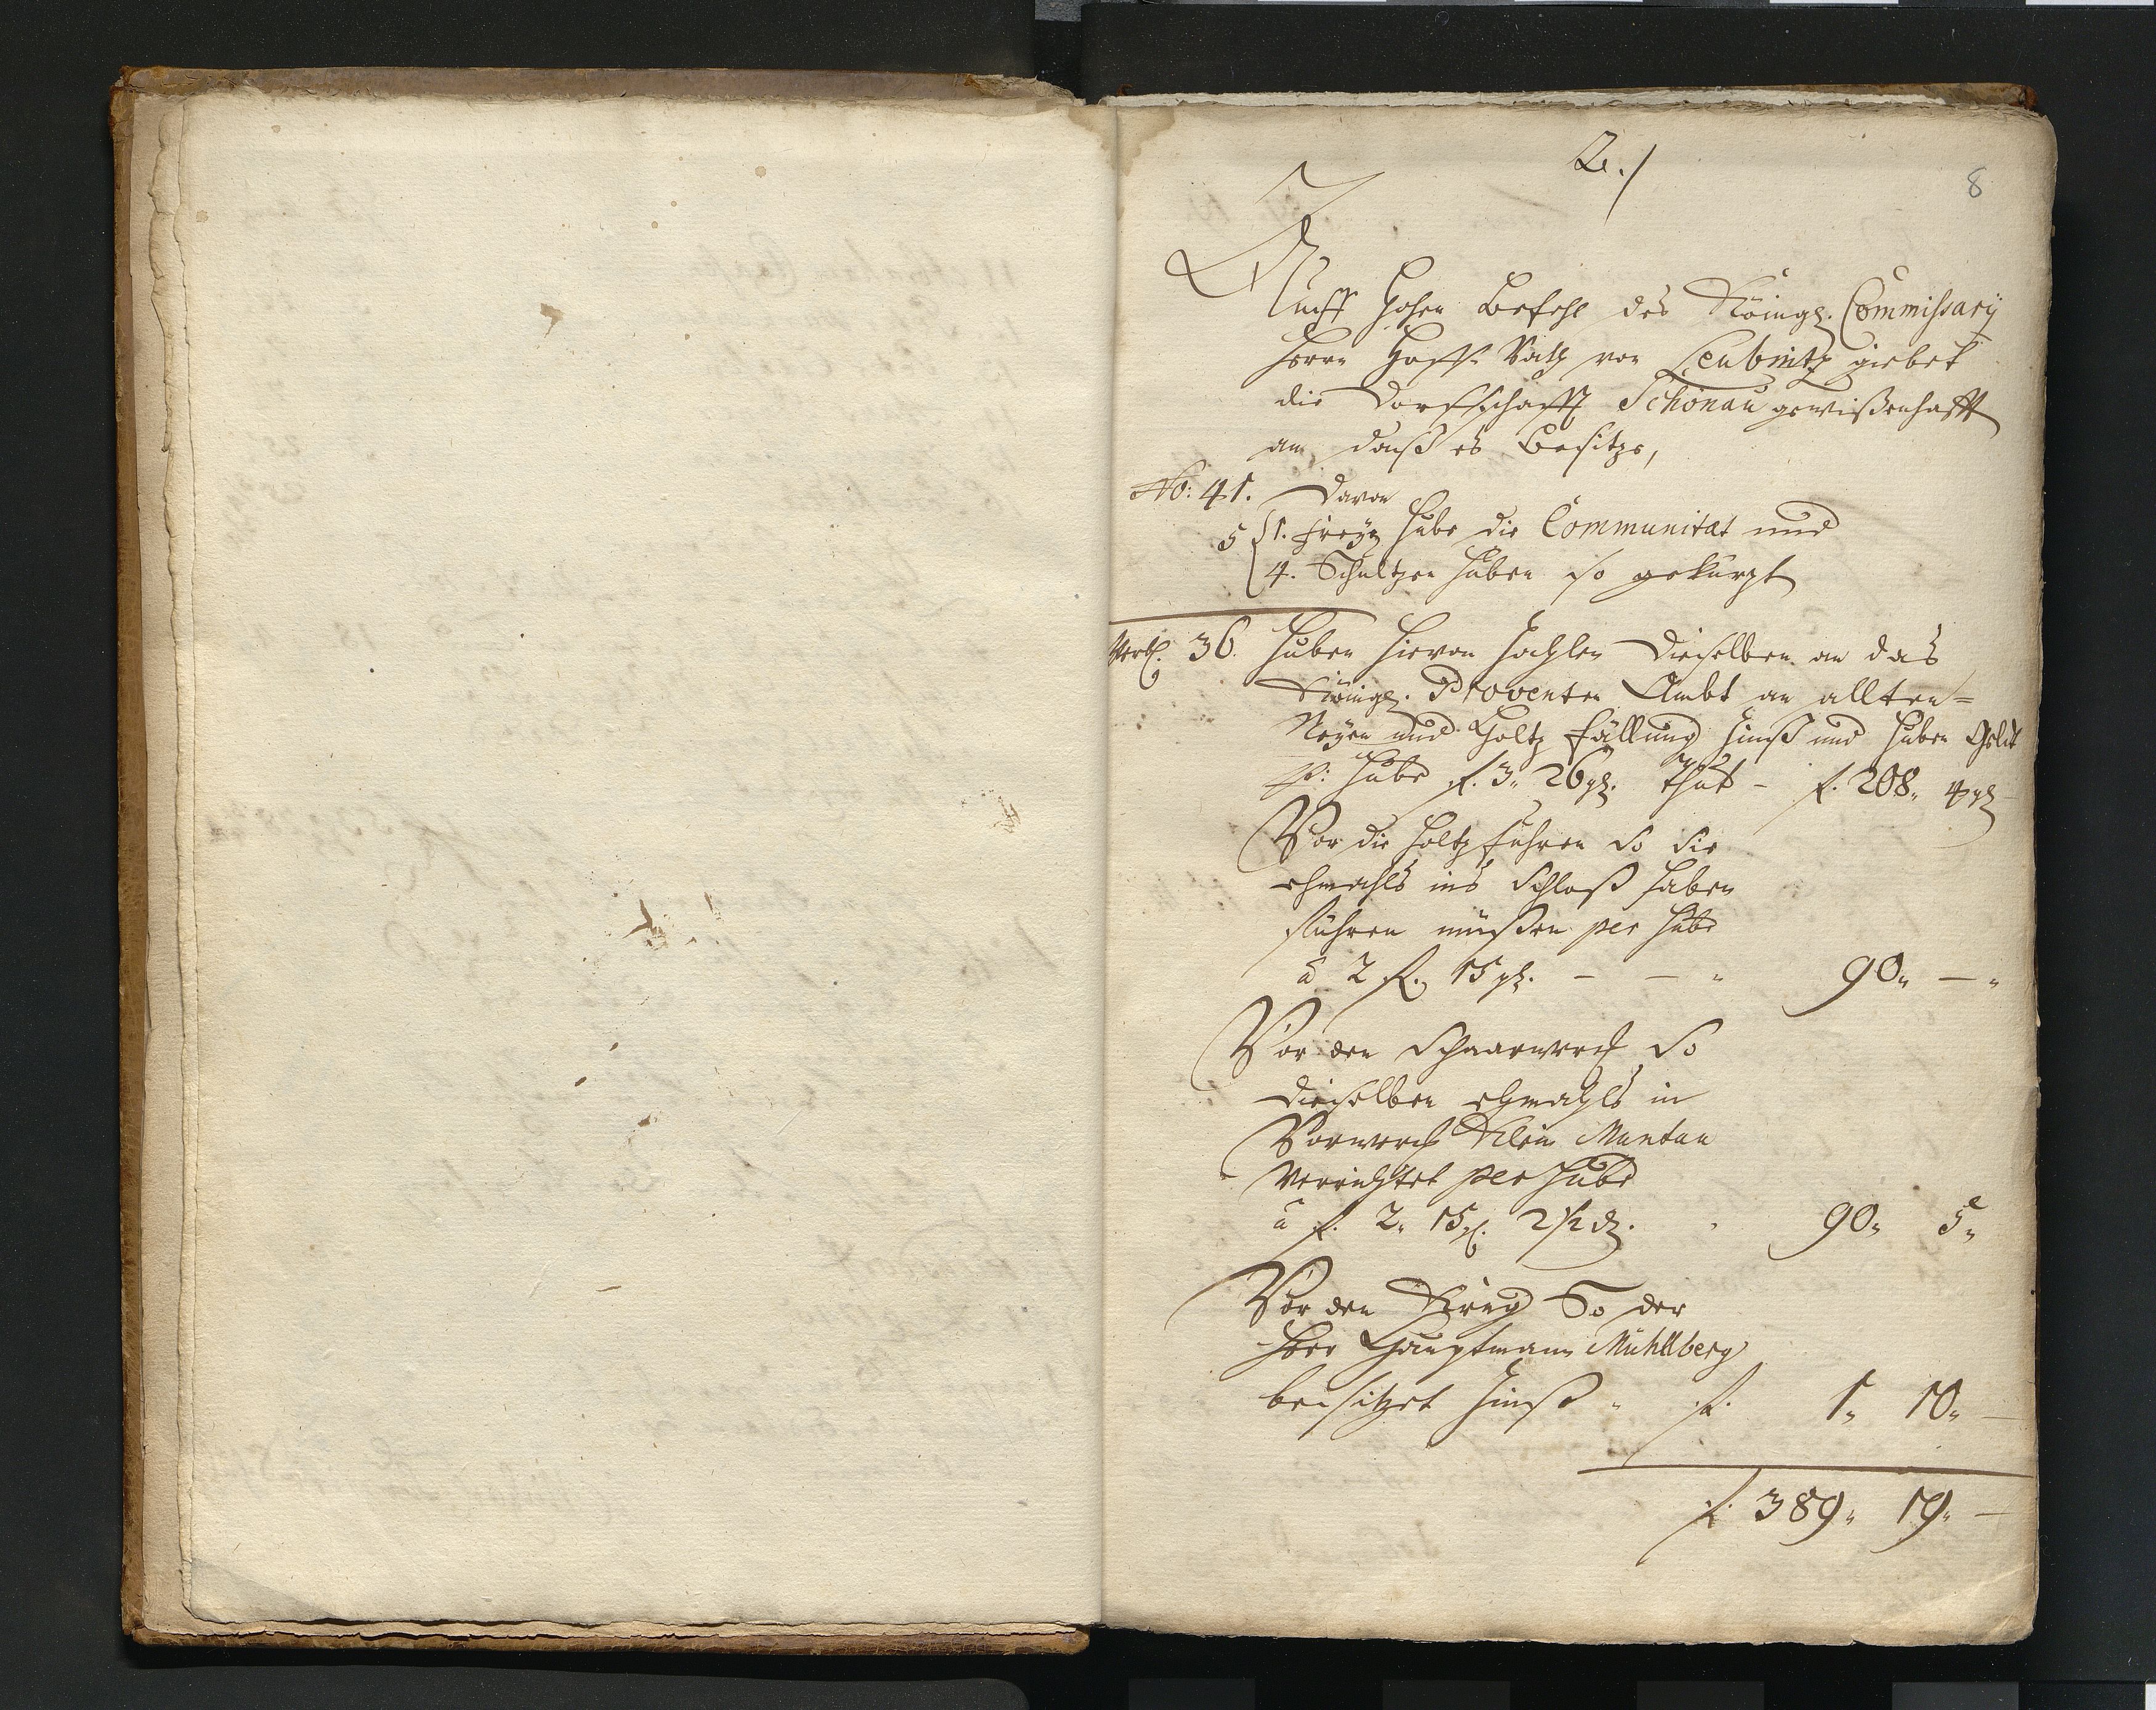 2./
8
Auff Hohen Befehl des Königl. Commissary
Herrn Hoff Rath von Leubnitz giebet
die Dorffschafft Schönau gewißenhafft
an daß es Besitze,
No: 41. Davon
5 { 1. Frey Hube die Communitat und
4. Schultzen Huben so gekürzt
Verbl. 36. Huben hievon zahlen Dieselben an das
Königl. Proventen Ambt an allten-
Neyen und Holtz fällung Zinß und Huben Geldt
p: Hube f. 3„ 26 gl. thut - f. 208„ 4 gl
Vor die Holtz fuhren So Sie
ehmahls ins Schloß haben
führen müßen per Hube
a 2 f. 15 gl. - - „ 90„ - „
Vor den Schaarwerck So
Dieselben ehmahls in
Vorwerck Klein Mantau
Verrichtet per Hube
a f. 2„ 15 gl. 2 1/2 d. 90„ 5„
Vor den Krug So der
Herr Hauptmann Mühlberg
besitzet Zinß „ f. 1„ 10„ -
f. 389„ 19„ -